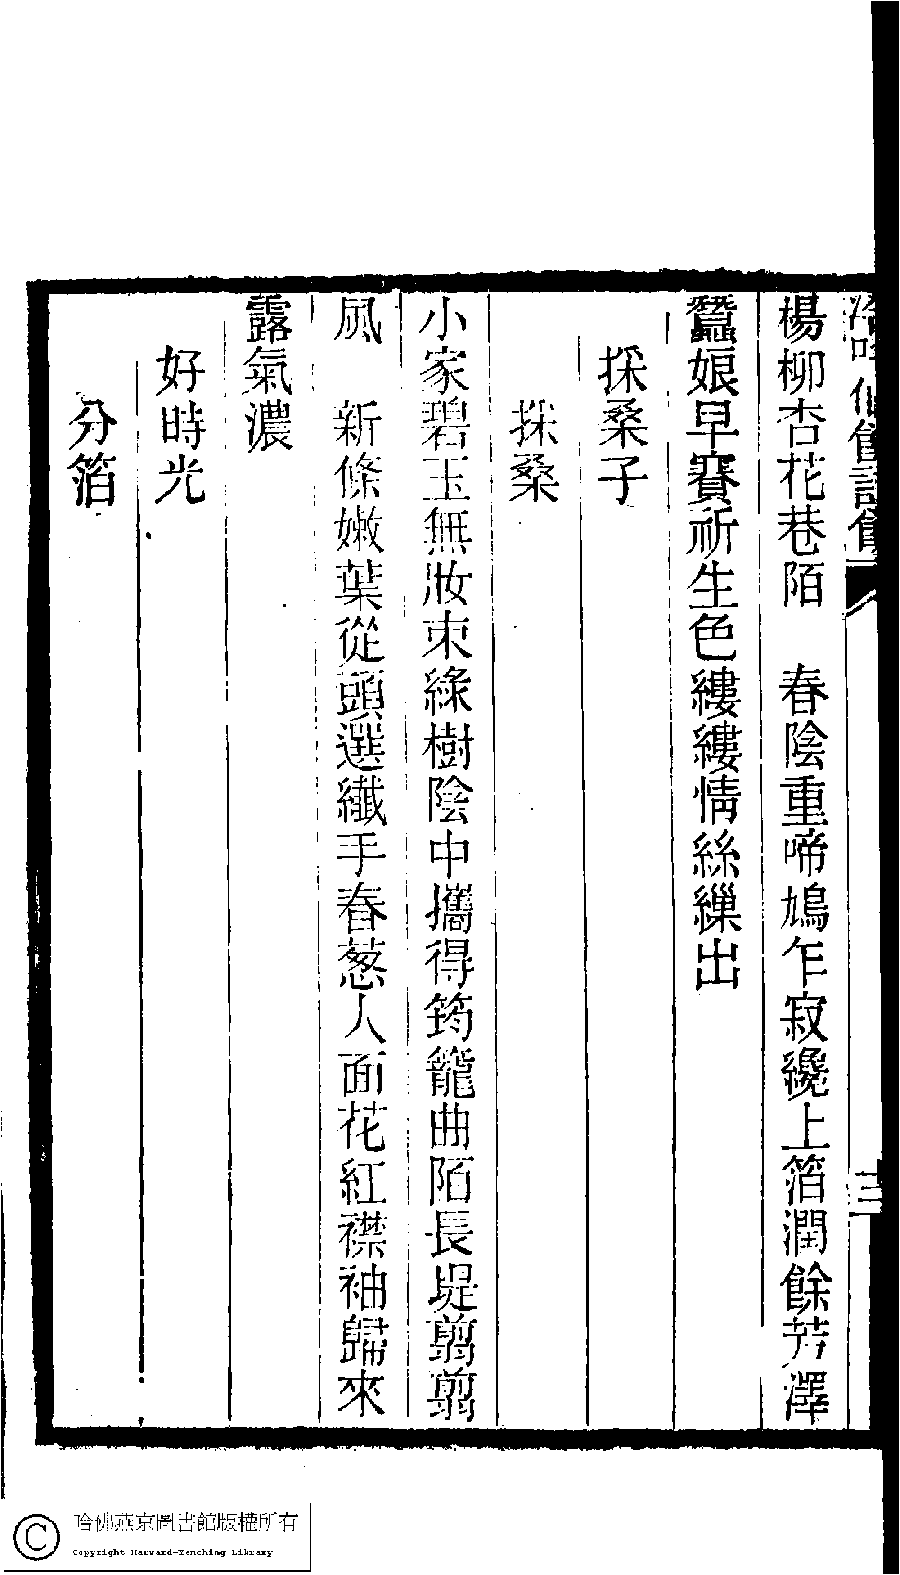 楊柳杏花巷陌　春陰重啼鳩乍寂纔上箔潤餘芳澤
蠶娘早賽祈生色縷縷情絲繅出
採桑子
採桑
小家碧玉無妝束綠樹陰中攜得筠籠曲陌長堤翦翦
風　新條嫩葉從頭選纖手春葱人面花紅襟袖歸來
露氣濃
好時光
分箔
三
哈佛燕京圖書館版權所有
Copyright Harvard-Yenching Library